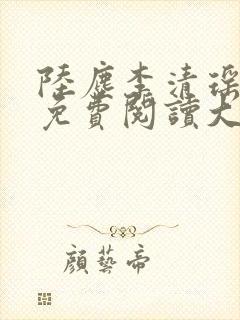 陸塵李清瑤
免費閱讀大
顏藝帝